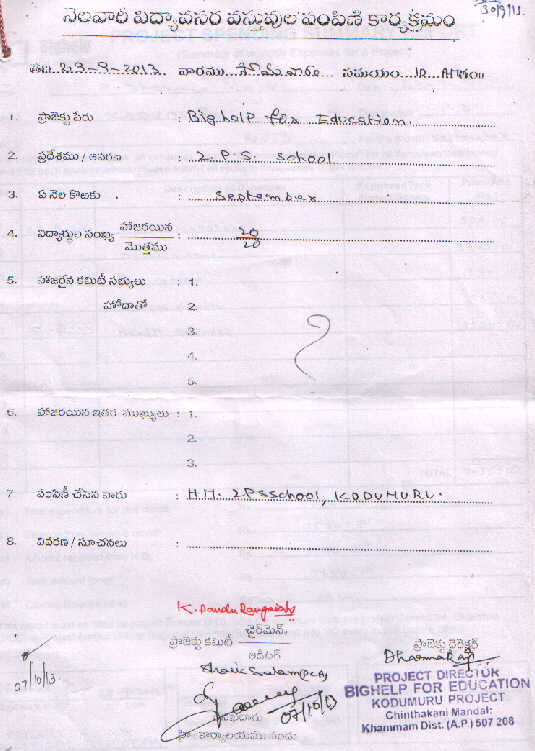 30/9/13.
నెలవారీ విద్యావసర వస్తువుల పంపిణి కార్యక్రమం
తేది: 23-9-2013 వారము సోమవారం సమయం 10
1. ప్రాజెక్టు పేరు : Bighelp for Education.
2. ప్రదేశము / ఆవరణ : Z.P.S. School
3. ఏ నెల కొఱకు . : September
4. విద్యార్థుల సంఖ్య హాజరయిన : 20
మొత్తము 20
5. హాజరైన కమిటీ సభ్యులు : 1.
హోదాతో 2.
3.
4.
5.
6. హాజరయిన ఇతర ముఖ్యులు : 1.
2.
3.
7 పంపిణీ చేసిన వారు : H.M. ZPSSchool, KODUMURU.
8. వివరణ / సూచనలు :
K. Pandu Rangaiah
ప్రాజెక్టు కమిటీ చైర్‌మెన్,
ఆడిటర్
ప్రాజెక్టు డైరెక్టర్
07/10/13
07/10/13
PROJECT DIRECTOR
BIGHELP FOR EDUCATION
KODUMURU PROJECT
Chinthakani Mandal:
Khammam Dist. (A.P.) 507 208